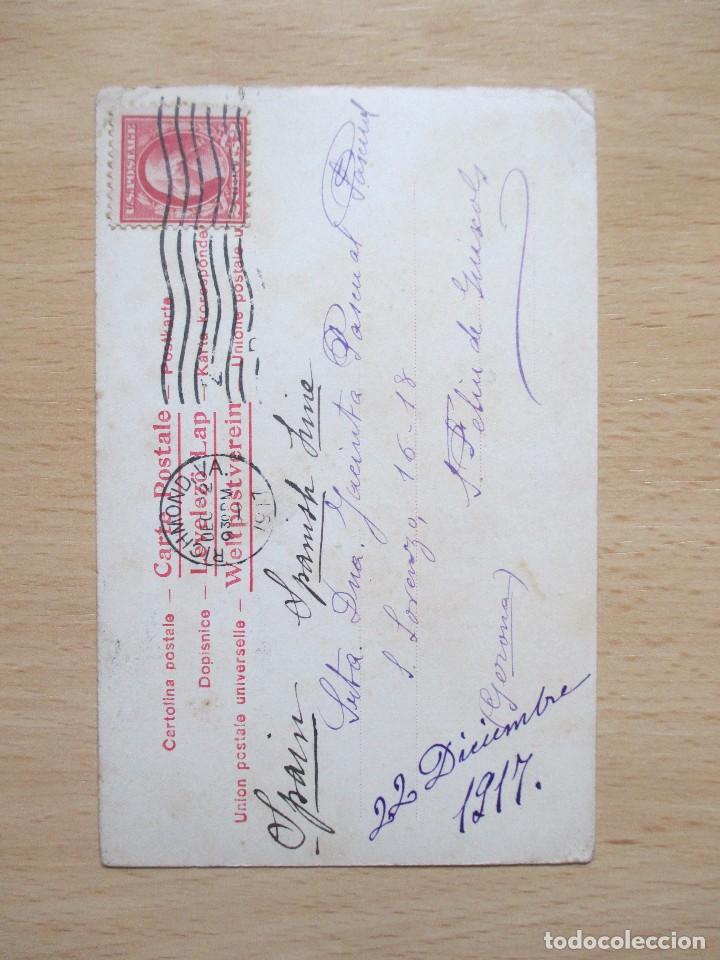 Cartolina postale — Carte Postale — Postkarte
Dopisnice — Levelező-Lap — Karta koresponde
Union postale universelle — Weltpostverein — Unione postale u
U.S. POSTAGE
RICHMOND, VA.
DEC
930 PM
1917
Spain Spanish Line
Srta. Dna. Jacinta Pascual Pascual
S. Lorenzo, 16-18
S. Feliu de Guixols
(Gerona)
22 Diciembre
1917.
todocoleccion
todocoleccion.net